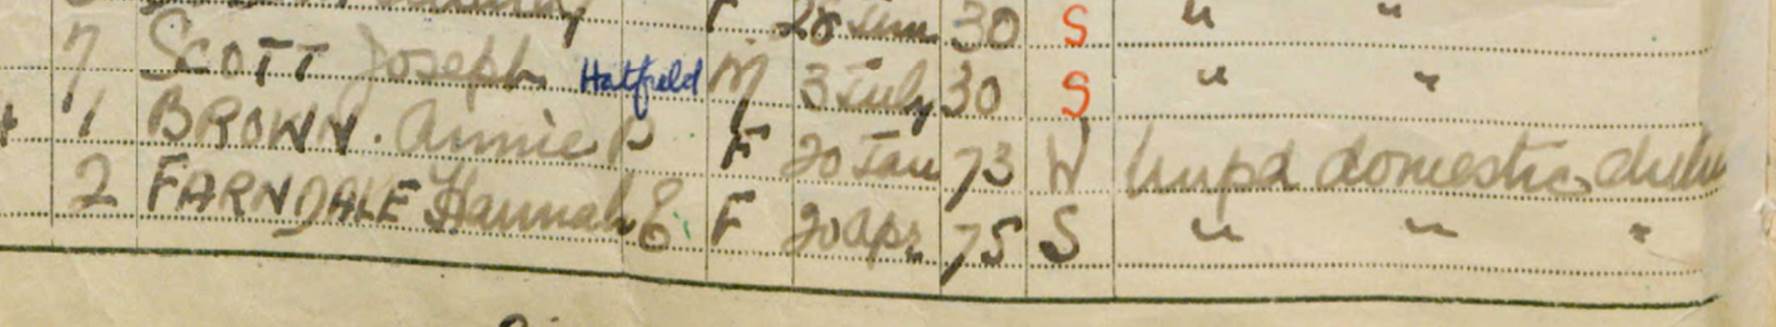 F 28 Jun 30 S " "
7 SCOTT Joseph Hatfield M 3 July 30 S " "
1 BROWN. Annie P F 20 Jan 73 W Unpd domestic duties
2 FARNDALE Hannah E F 20 Apr. 75 S " " "